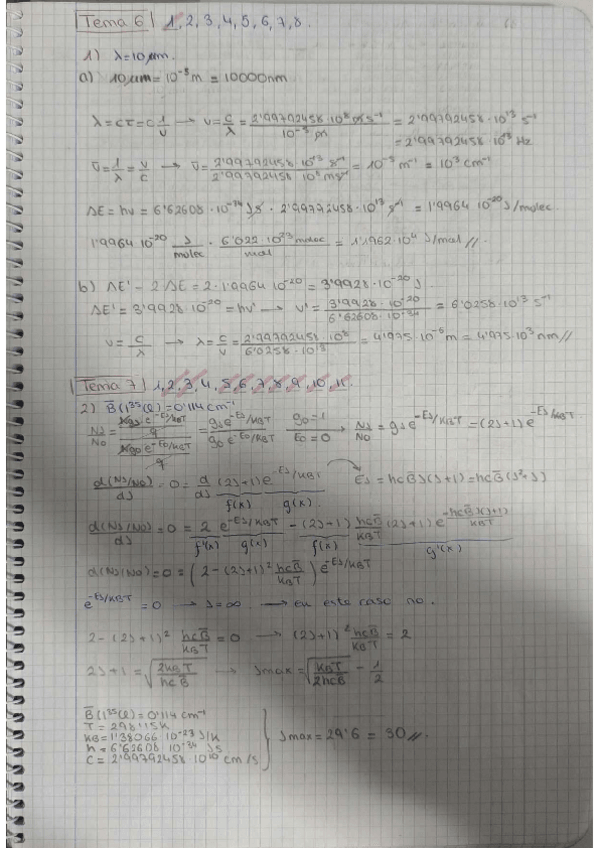 Tema 6 | 1, 2, 3, 4, 5, 6, 7, 8.
1) λ = 10 μm.
a) 10 μm = 10⁻⁵ m = 10000 nm
λ = cτ = c 1/ν → ν = c/λ = 2'99792458 · 10⁸ m s⁻¹ / 10⁻⁵ m = 2'99792458 · 10¹³ s⁻¹
= 2'99792458 · 10¹³ Hz
ν̄ = 1/λ = ν/c → ν̄ = 2'99792458 · 10¹³ s⁻¹ / 2'99792458 · 10⁸ m s⁻¹ = 10⁻⁵ m⁻¹ = 10³ cm⁻¹
ΔE = hν = 6'62608 · 10⁻³⁴ J s · 2'99792458 · 10¹³ s⁻¹ = 1'9964 10⁻²⁰ J/molec.
1'9964 10⁻²⁰ J/molec · 6'022 · 10²³ molec/mol = 1'1962 · 10⁴ J/mol //
b) ΔE' = 2 ΔE = 2 · 1'9964 10⁻²⁰ = 3'9928 · 10⁻²⁰ J
ΔE' = 3'9928 · 10⁻²⁰ = hν' → ν' = 3'9928 · 10⁻²⁰ / 6'62608 · 10⁻³⁴ = 6'0258 · 10¹³ s⁻¹
ν = c/λ → λ = c/ν = 2'99792458 · 10⁸ / 6'0258 · 10¹³ = 4'975 · 10⁻⁶ m = 4'975 · 10³ nm //
Tema 7 | 1, 2, 3, 4, 5, 6, 7, 8, 9, 10, 11.
2) B̄ (I³⁵Cl) = 0'114 cm⁻¹
NJ/N0 = (N gJ e^(-EJ/KBT)/q) / (N g0 e^(-E0/KBT)/q) = gJ e^(-EJ/KBT) / g0 e^(-E0/KBT) g0 = 1 E0 = 0 → NJ/N0 = gJ e^(-EJ/KBT) = (2J+1) e^(-EJ/KBT)
d(NJ/N0)/dJ = 0 = d/dJ (2J+1) e^(-EJ/KBT) EJ = hcB̄J(J+1) = hcB̄(J²+J)
f(x) g(x)
d(NJ/N0)/dJ = 0 = 2 e^(-EJ/KBT) - (2J+1) hcB̄/KBT (2J+1) e^(-hcB̄J(J+1)/KBT)
f'(x) g(x) f(x) g'(x)
d(NJ/N0) = 0 = (2 - (2J+1)² hcB̄/KBT) e^(-EJ/KBT)
e^(-EJ/KBT) = 0 → J = ∞ → en este caso no.
2 - (2J+1)² hcB̄/KBT = 0 → (2J+1)² hcB̄/KBT = 2
2J+1 = √(2KBT/hcB̄) → Jmax = √(KBT/2hcB̄) - 1/2
B̄ (I³⁵Cl) = 0'114 cm⁻¹
T = 298'15 K
KB = 1'38066 · 10⁻²³ J/K
Jmax = 29'6 = 30 //.
h = 6'62608 · 10⁻³⁴ J s
c = 2'99792458 · 10¹⁰ cm/s